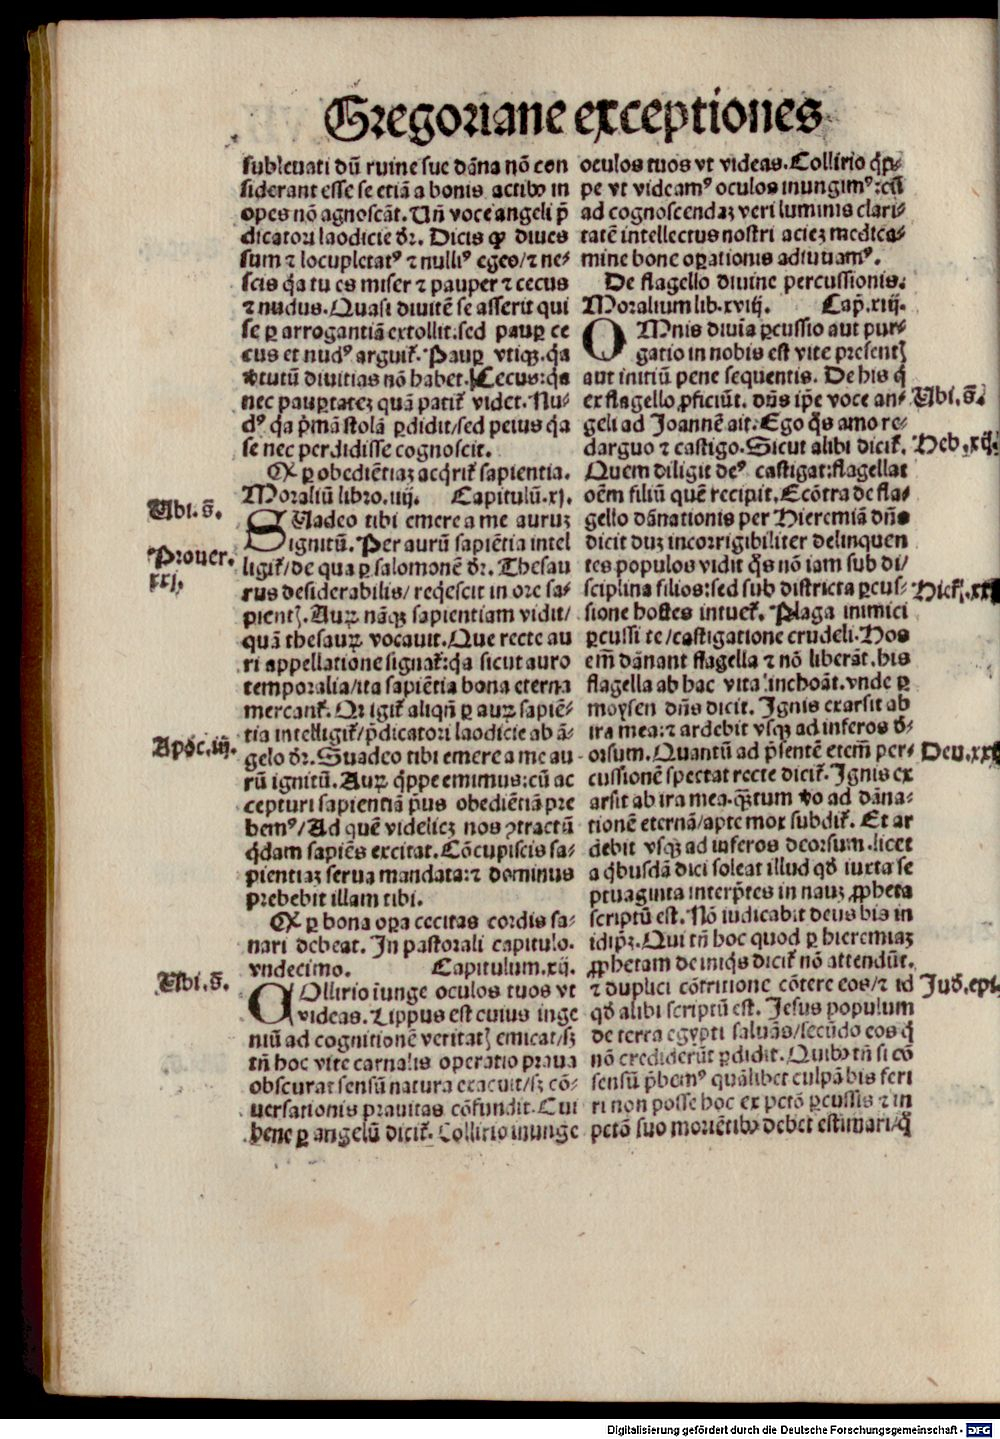 Gregoriane exceptiones
subleuati dū ruine sue dāna nō con
siderant esse se etiā a bonis actibꝰ in
opes nō agnoscāt. Uñ voce angeli p̄
dicatori laodicie dr̄. Dicis ꝙ diues
sum ⁊ locupletatꝰ ⁊ nulliꝰ egeo/⁊ ne⸗
scis q̇a tu es miser ⁊ pauper ⁊ cecus
⁊ nudus. Quasi diuitē se asserit qui
se ꝑ arrogantiā extollit: sed pauꝑ ce
cus et nudꝰ arguit᷑. Pauꝑ vtiqꝫ. q̇a
v̓tutū diuitias nō habet. Cecus: q̇a
nec pauꝑtateꝫ quā patit᷑ videt. Nu⸗
dꝰ q̇a p̓mā stolā ꝑdidit/sed peius q̇a
se nec perdidisse cognoscit.
Ꝙ ꝑ obediētiaꝫ acq̇rit᷑ sapientia.
Moraliū libro .iiij. Capitulū .xj.
SUadeo tibi emere a me auruꝫ
ignitū. Per aurū sapiētia intel
ligit᷑/de qua ꝑ salomonē dr̄. Thesau
rus desiderabilis/ req̇escit in ore sa⸗
pientꝭ. Auꝝ nāqꝫ sapientiam vidit/
quā thesauꝝ vocauit. Que recte au
ri appellatione signat᷑: q̇a sicut auro
temporalia/ita sapiētia bona eterna
mercant᷑. Qꝛ igit᷑ aliqñ ꝑ auꝝ sapiē⸗
tia intelligit᷑/p̄dicatori laodicie ab ā⸗
gelo dr̄. Suadeo tibi emere a me au
rū ignitū. Auꝝ q̇ppe emimus: cū ac
cepturi sapientiā p̓us obediētiā pre
bemꝰ/Ad quē videlicꝫ nos ↄtractū
q̇dam sapiēs excitat. Cōcupiscis sa⸗
pientiaꝫ serua mandata: ⁊ dominus
prebebit illam tibi.
Ꝙ ꝑ bona oꝑa cecitas cordis sa⸗
nari debeat. In pastorali capitulo.
vndecimo. Capitulum .xij.
COllirio iunge oculos tuos vt
videas. Lippus est cuius inge
niū ad cognitionē veritatꝭ emicat/sꝫ
tñ hoc vite carnalis operatio praua
obscurat sensū natura exacuit/sꝫ cō⸗
uersationis prauitas cōfundit. Cui
bene ꝑ angelū dicit᷑. Collirio inunge
oculos tuos vt videas. Collirio q̇p⸗
pe vt videamꝰ oculos inungimꝰ: cū
ad cognoscendaꝫ veri luminis clari⸗
tatē intellectus nostri acieꝫ medica⸗
mine bone oꝑationis adiuuamꝰ.
De flagello diuine percussionis.
Moralium lib. xviij. Cap̄. xiij.
OMnis diuīa ꝑcussio aut pur⸗
gatio in nobis est vite presentꝭ
aut initiū pene sequentis. De his q̇
ex flagello ꝓficiūt. dñs ip̄e voce an⸗
geli ad Joannē ait. Ego q̇s amo re⸗
darguo ⁊ castigo. Sicut alibi dicit᷑.
Quem diligit deꝰ castigat: flagellat
oēm filiū quē recipit. Ecōtra de fla⸗
gello dānationis per Hieremiā dñs
dicit duꝫ incorrigibiliter delinquen
tes populos vidit q̇s nō iam sub di/
sciplina filios: sed sub districta ꝑcus⸗
sione hostes intuet᷑. Plaga inimici
ꝑcussi te/castigatione crudeli. Hos
em̄ dānant flagella ⁊ nō liberāt. his
flagella ab hac vita inchoāt. vnde ꝑ
moysen dñs dicit. Ignis exarsit ab
ira mea: ⁊ ardebit vsqꝫ ad inferos d̓⸗
orsum. Quantū ad p̄sentē etem̄ per⸗
cussionē spectat recte dicit᷑. Ignis ex
arsit ab ira mea. qꝫtum v̓o ad dāna⸗
tionē eternā/apte mox subdit᷑. Et ar
debit vsqꝫ ad inferos deorsum. licet
a q̇busdā dici soleat illud qd̓ iuxta se
ptuaginta interp̄tes in nauꝫ ꝓpheta
scriptū est. Nō iudicabit deus bis in
idip̄ꝫ. Qui tñ hoc quod ꝑ hieremiaꝫ
ꝓphetam de iniq̇s dicit᷑ nō attendūt.
⁊ duplici cōtritione cōtere eos/⁊ id
qd̓ alibi scriptū est. Jesus populum
de terra egypti saluās/secūdo eos q̇
nō crediderūt ꝑdidit. Quibꝰ tñ si cō
sensū p̄bemꝰ qualibet culpā bis feri
ri non posse hoc ex pctō ꝑcussis ⁊ in
pctō suo moriētibꝰ debet estimari/ꝙ
Ubi. s̄.
Prouer.
xxj.
Apoc. iij.
Ubi. s̄.
Ubi. s̄.
Heb. xij.
Deu. xx
Jud̓. epi.
Digitalisierung gefördert durch die Deutsche Forschungsgemeinschaft - DFG